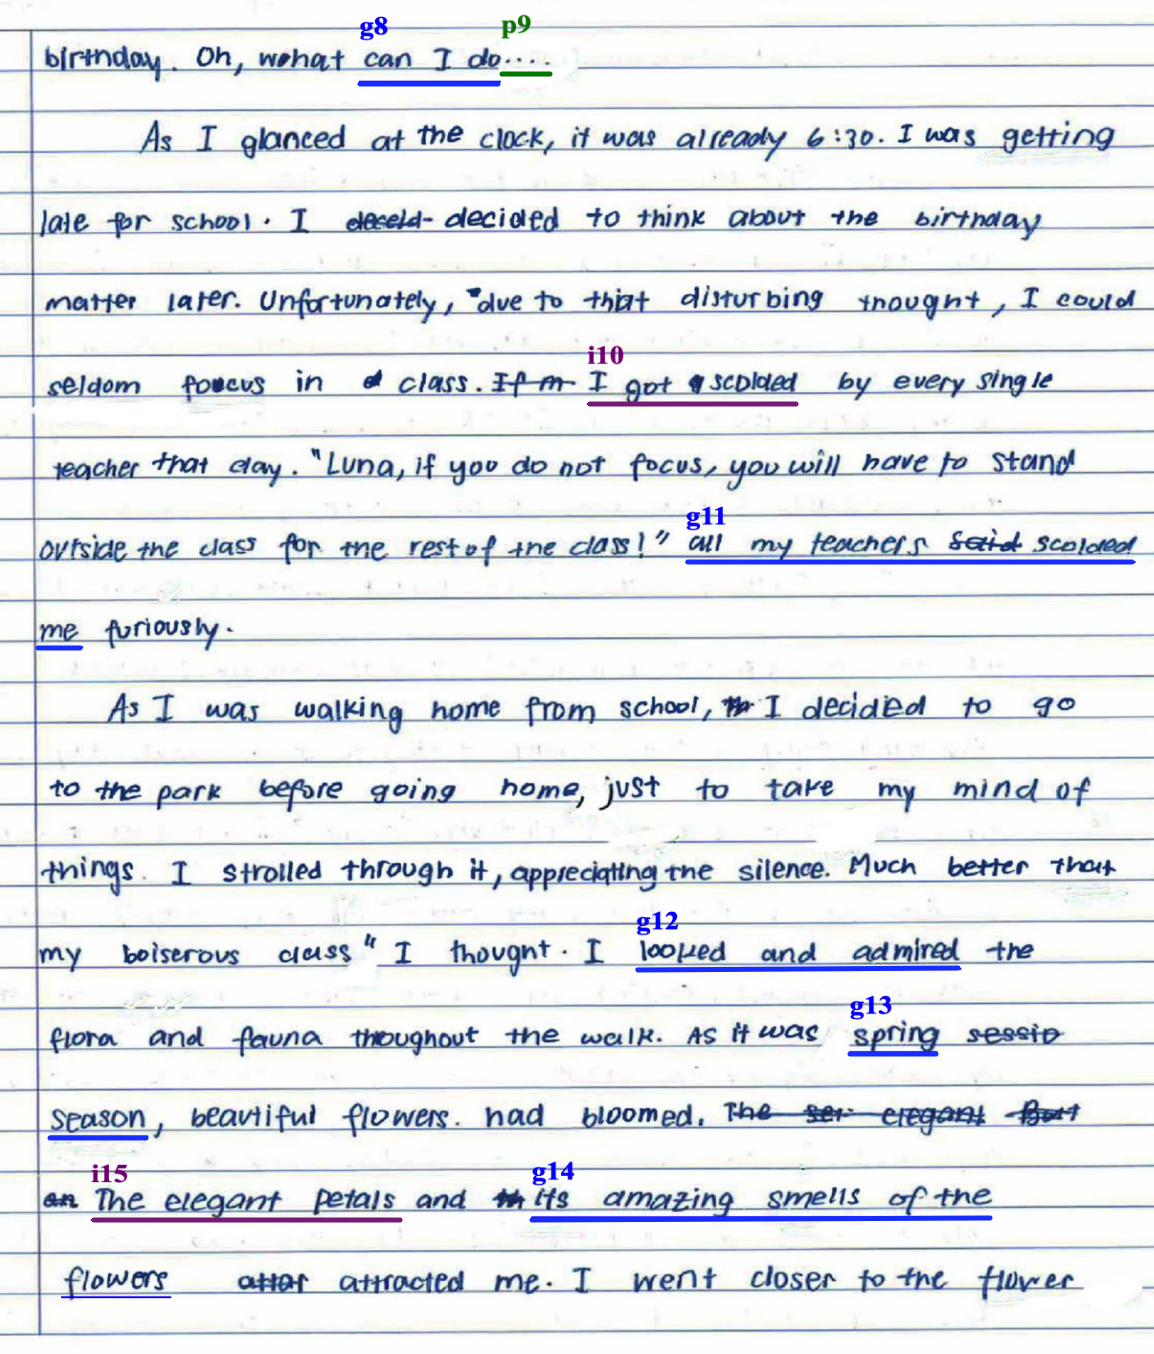 g8 p9
birthday. Oh, what can I do....
As I glanced at the clock, it was already 6:30. I was getting
late for school. I decided to think about the birthday
matter later. Unfortunately, due to that disturbing thought, I could
i10
seldom foucus in class. If m I got scolded by every single
teacher that day. "Luna, if you do not focus, you will have to stand
g11
outside the class for the rest of the class!" all my teachers said scolded
me furiously.
As I was walking home from school, th I decided to go
to the park before going home, just to take my mind of
things. I strolled through it, appreciating the silence. Much better that
g12
my boiserous class" I thought. I looked and admired the
g13
flora and fauna thoughout the walk. As it was spring sessio
season, beautiful flowers. had bloomed. The ser elegant But
i15 g14
an The elegant petals and th its amazing smells of the
flowers attar attracted me. I went closer to the flower